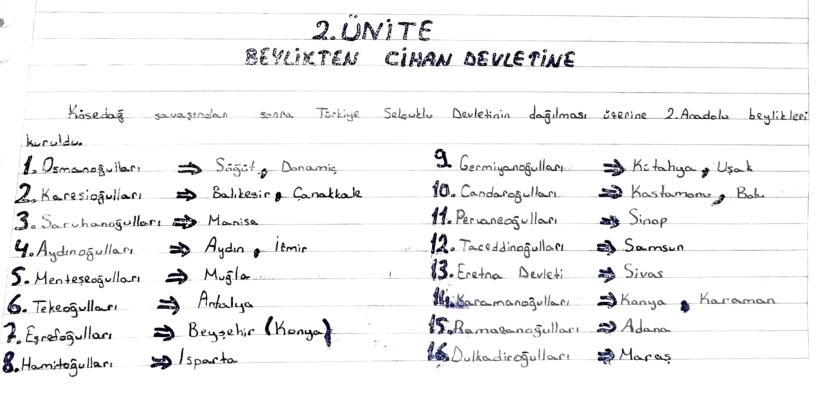 2.ÜNİTE
BEYLİKTEN CİHAN DEVLETİNE
Kösedağ savaşından sonra Türkiye Selçuklu Devletinin dağılması üzerine 2.Anadolu beylikleri
kuruldu.
1.Osmanoğulları ⇒ Söğüt, Domaniç
2.Karesioğulları ⇒ Balıkesir, Çanakkale
3.Saruhanoğulları ⇒ Manisa
4.Aydınoğulları ⇒ Aydın, İzmir
5.Menteşeoğulları ⇒ Muğla
6.Tekeoğulları ⇒ Antalya
7.Eşrefoğulları ⇒ Beyşehir (Konya)
8.Hamitoğulları ⇒ Isparta
9.Germiyanoğulları ⇒ Kütahya, Uşak
10.Candaroğulları ⇒ Kastamonu, Bolu
11.Pervaneoğulları ⇒ Sinop
12.Taceddinoğulları ⇒ Samsun
13.Eretna Devleti ⇒ Sivas
14.Karamanoğulları ⇒ Konya, Karaman
15.Ramazanoğulları ⇒ Adana
16.Dulkadiroğulları ⇒ Maraş